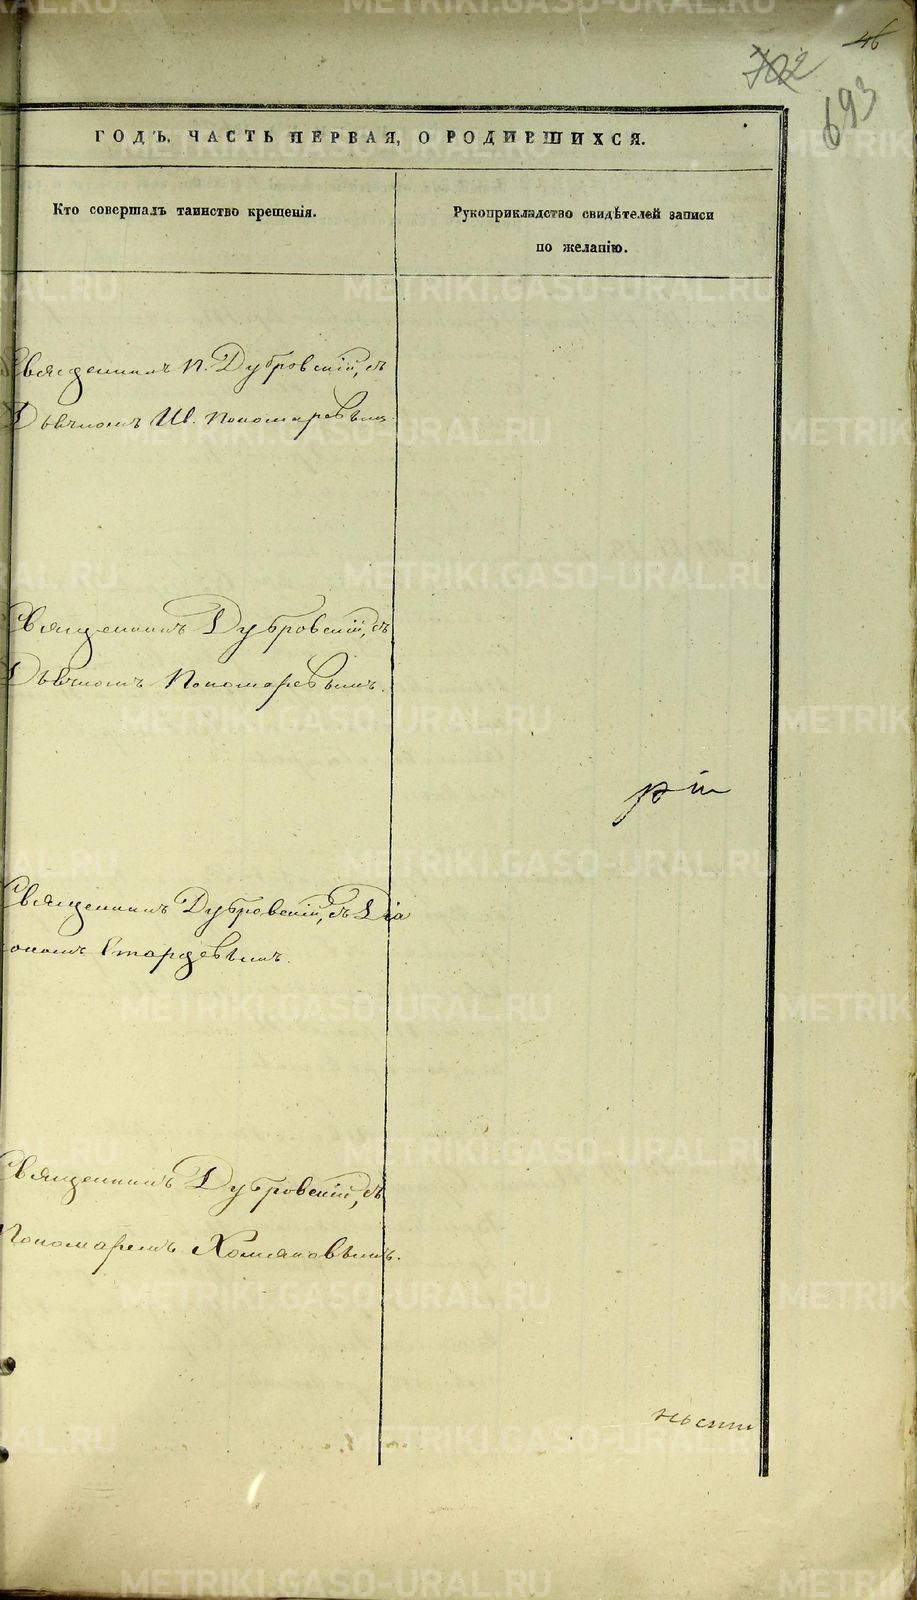 46
702
693
ГОДЪ, ЧАСТЬ ПЕРВАЯ, О РОДИВШИХСЯ.
Кто совершалъ таинство крещенія.
Рукоприкладство свидѣтелей записи
по желанію.
Священникъ П. Дубровскій, съ
Дьячкомъ Ив. Пономаревымъ.
Священникъ Дубровскій, съ
Дьячкомъ Пономаревымъ.
Священникъ Дубровскій, съ Діа
кономъ Старцевымъ.
Священникъ Дубровскій, съ
Пономаремъ Хомяковымъ.
METRIKI.GASO-URAL.RU